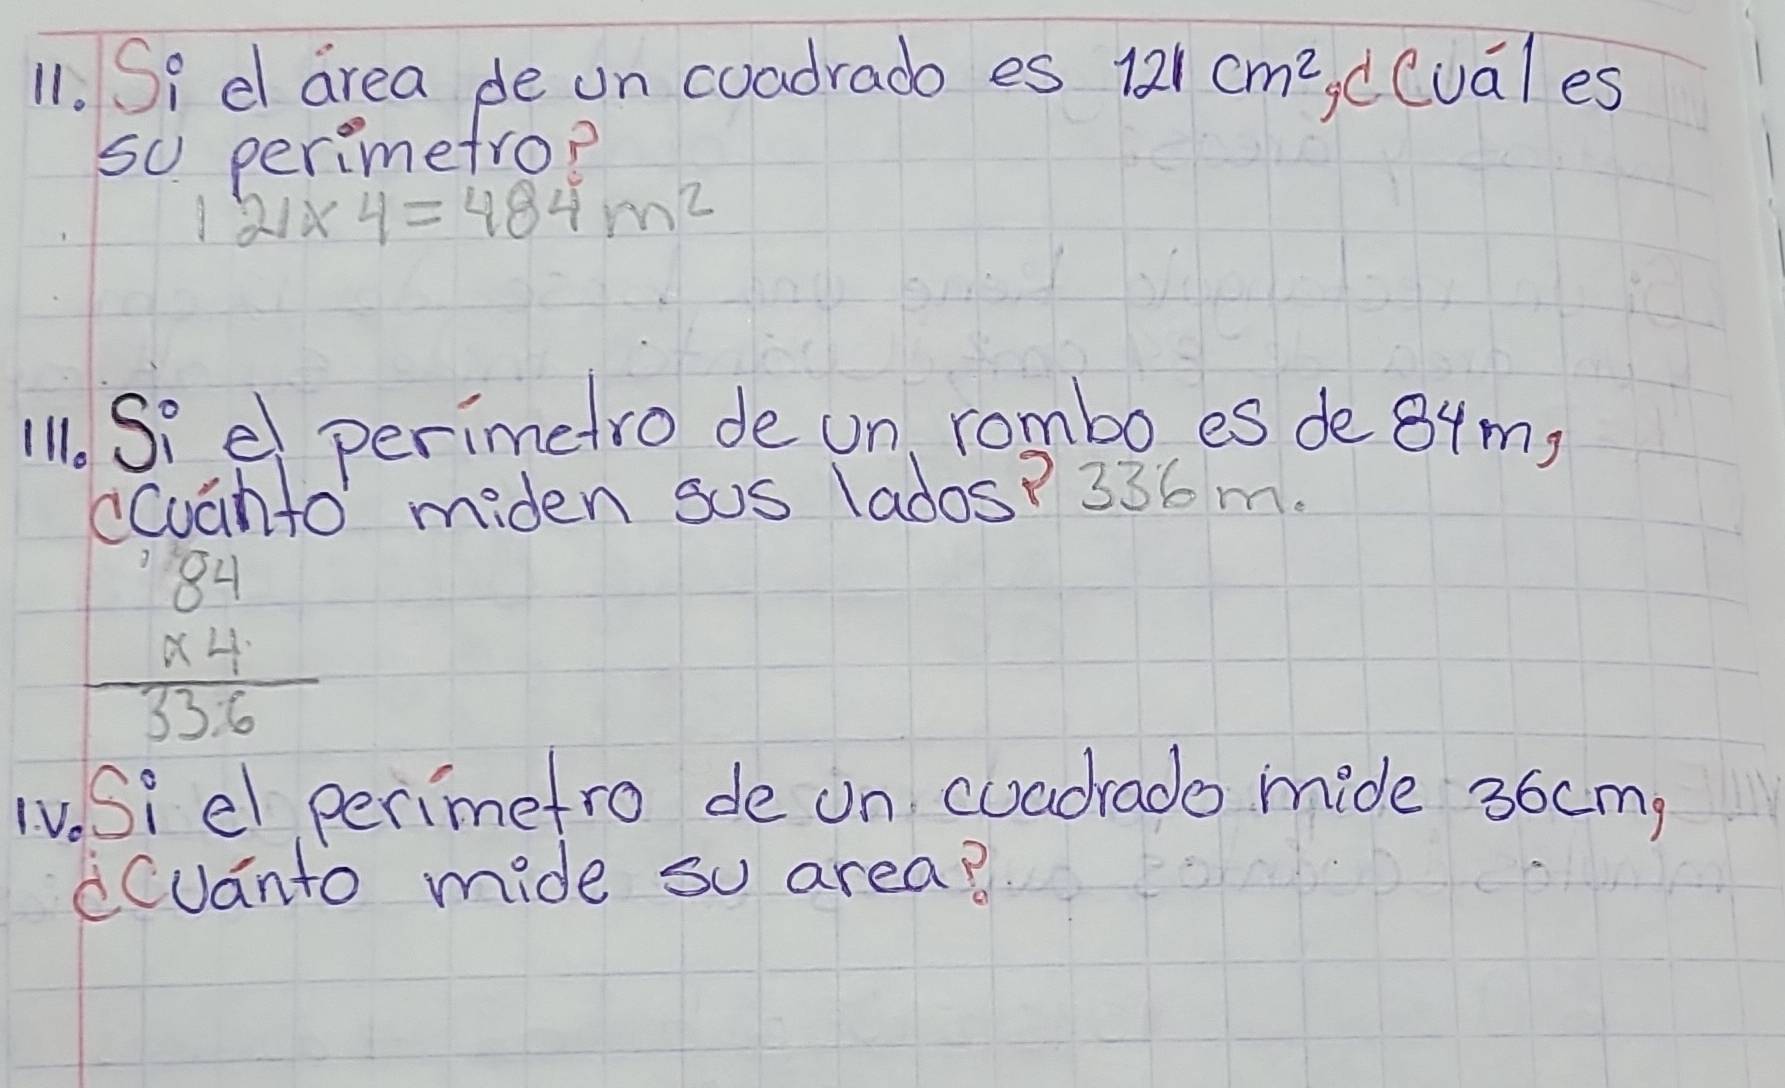 11. Si el área de un cuadrado es 121 cm², ¿Cuál es
su perímetro?
121 x 4 = 484 m²
111. Si el perímetro de un rombo es de 84m,
¿Cuánto miden sus lados? 336 m.
84
x 4
336
1v. Si el perímetro de un cuadrado mide 36cm,
¿Cuánto mide su area?